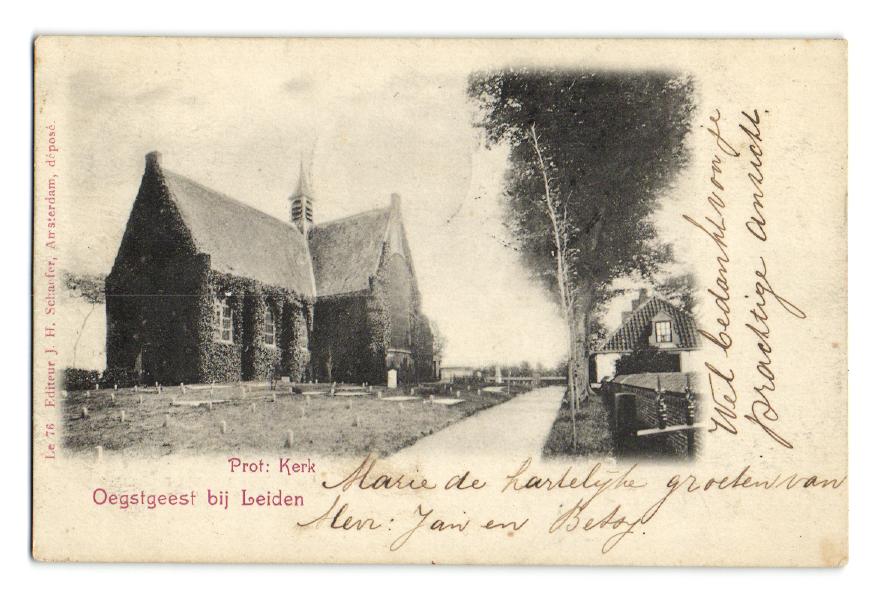 Le 76 Editeur J. H. Schaefer, Amsterdam, déposé.
Prot: Kerk
Oegstgeest bij Leiden
Marie de hartelijke groeten van
Mevr: Jan en Betsy
Wel bedankt voor je
prachtige ansicht.